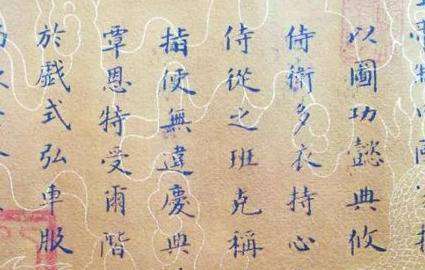 以圖功懿典攸
侍衛多衣持心
侍從之班克稱
指使無違慶典
覃恩特受爾階
於戯式弘車服